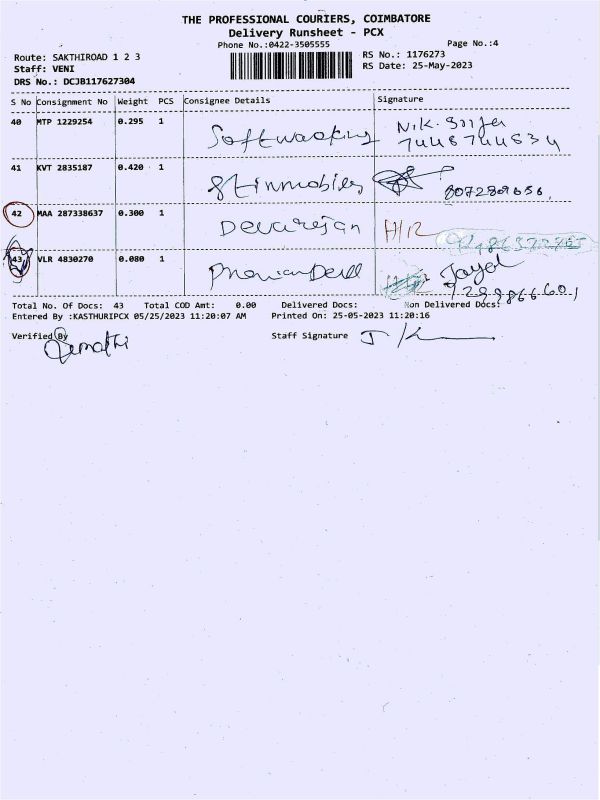 THE PROFESSIONAL COURIERS, COIMBATORE
Delivery Runsheet - PCX
Phone No.:0422-3505555
Page No.:4
Route: SAKTHIROAD 1 2 3
RS No.: 1176273
Staff: VENI
RS Date: 25-May-2023
DRS No.: DCJB117627304
S No Consignment No Weight PCS Consignee Details Signature
40 MTP 1229254 0.295 1
41 KVT 2835187 0.420 1 8072809656
42 MAA 287338637 0.300 1 Devarejan H/R
43 VLR 4830270 0.080 1
Total No. Of Docs: 43 Total COD Amt: 0.00 Delivered Docs: Non Delivered Docs:
Entered By :KASTHURIPCX 05/25/2023 11:20:07 AM Printed On: 25-05-2023 11:20:16
Verified By Staff Signature